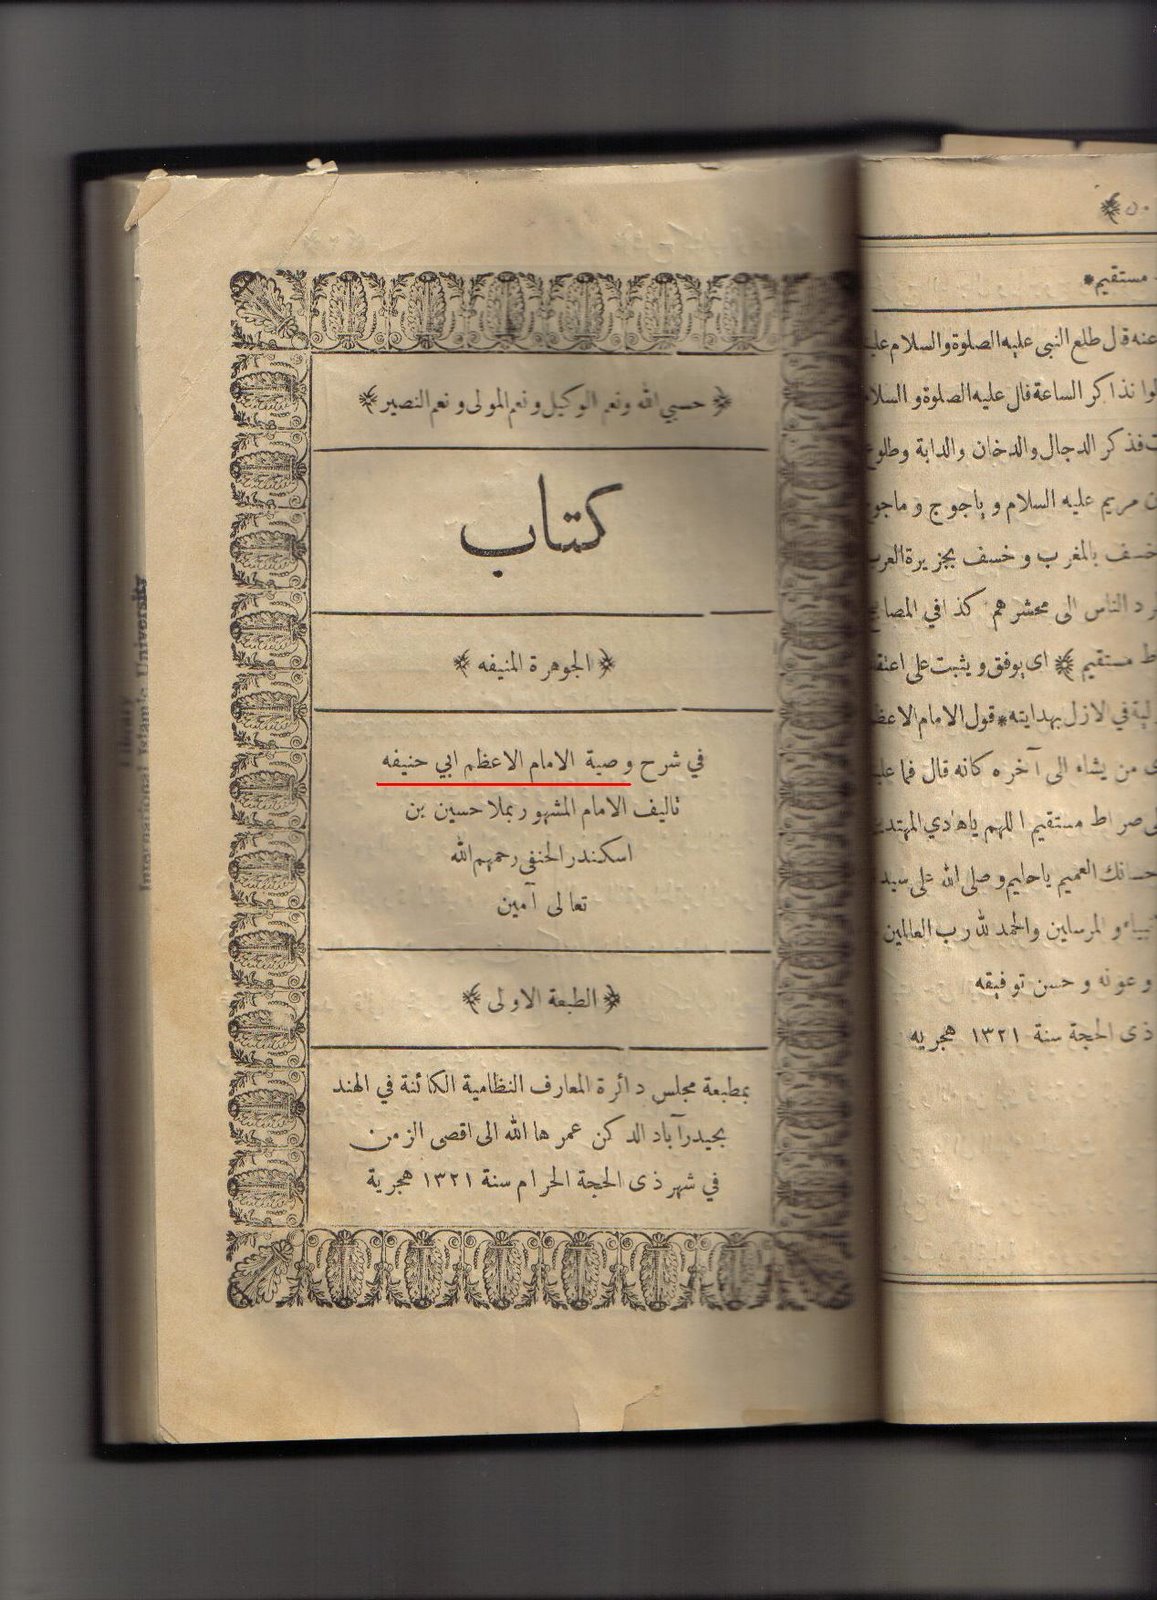 ﴿ حسبي الله ونعم الوكيل ونعم المولى ونعم النصير ﴾
كتاب
﴿ الجوهرة المنيفه ﴾
في شرح وصية الامام الاعظم ابي حنيفه
تاليف الامام المشهور بملا حسين بن
اسكندر الحنفي رحمهم الله
تعالى آمين
﴿ الطبعة الاولى ﴾
بمطبعة مجلس دائرة المعارف النظامية الكائنة في الهند
بحيدرآباد الدكن عمرها الله الى اقصى الزمن
في شهر ذى الحجة الحرام سنة ١٣٢١ هجرية
Library
International Islamic University
مستقيم *
عنه قال طلع النبى عليه الصلوة والسلام
نذاكر الساعة قال عليه الصلوة و
فذكر الدجال والدخان والدابة
مريم عليه السلام و ياجوج و
خسف بالمغرب و خسف بجزيرة العرب
الناس الى محشرهم كذا في
مستقيم ﴾ اى يوفق و يثبت على
في الازل بهدايته * قول الامام
من يشاء الى آخره كانه قال
صراط مستقيم اللهم ياهادي
العميم ياحليم وصلى الله على
و المرسلين والحمد لله رب العالمين
و عونه و حسن توفيقه
ذى الحجة سنة ١٣٢١ هجريه